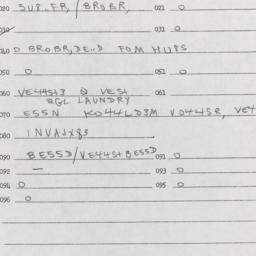 020 SUP..FR, / BROBR, 021 0
030 031 0
040 D BROBR, DE..D FOM HUPS
050 0 051 0
060 VE44St3 Q VESt 061
RGL LAUNDRY
070 ESSN KO44LD3M VO44SR, VE4
080 INVAJX83
090 BESSD/VE44St BESSD 091 0
092 — 093 0
094 0 095 0
096 0